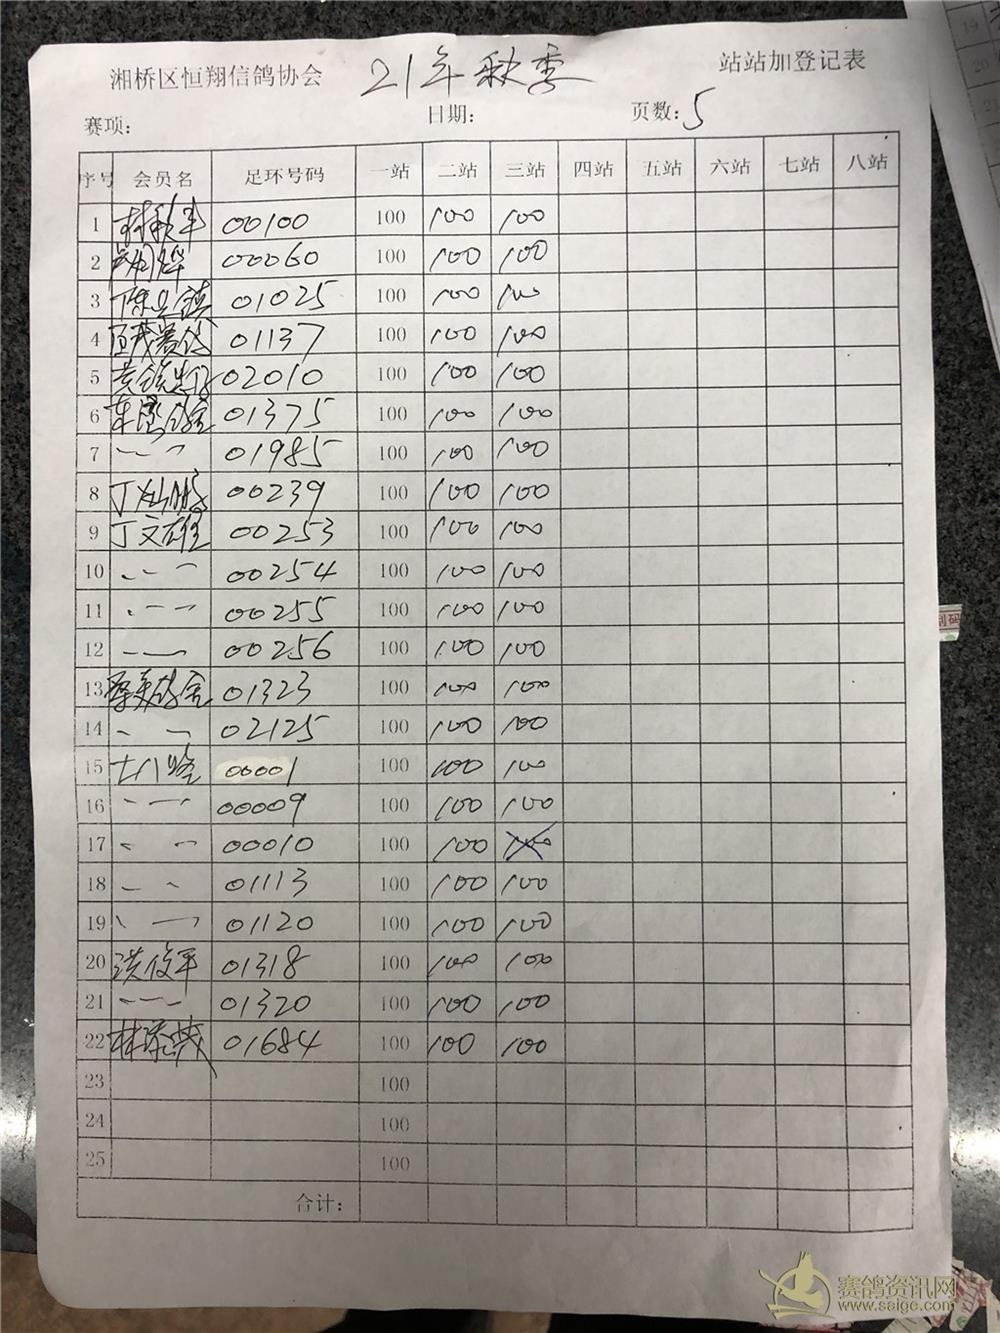 湘桥区恒翔信鸽协会 21年秋季 站站加登记表
赛项: 日期: 页数: 5
序号 会员名 足环号码 一站 二站 三站 四站 五站 六站 七站 八站
1 00100 100 100 100
2 00060 100 100 100
3 01025 100 100 100
4 01137 100 100 100
5 02010 100 100 100
6 01375 100 100 100
7 01985 100 100 100
8 00239 100 100 100
9 丁文雄 00253 100 100 100
10 00254 100 100 100
11 00255 100 100 100
12 00256 100 100 100
13 01323 100 100 100
14 02125 100 100 100
15 00001 100 100 100
16 00009 100 100 100
17 00010 100 100 100
18 01113 100 100 100
19 01120 100 100 100
20 洪俊平 01318 100 100 100
21 01320 100 100 100
22 01684 100 100 100
23 100
24 100
25 100
合计:
赛鸽资讯网
www.saige.com